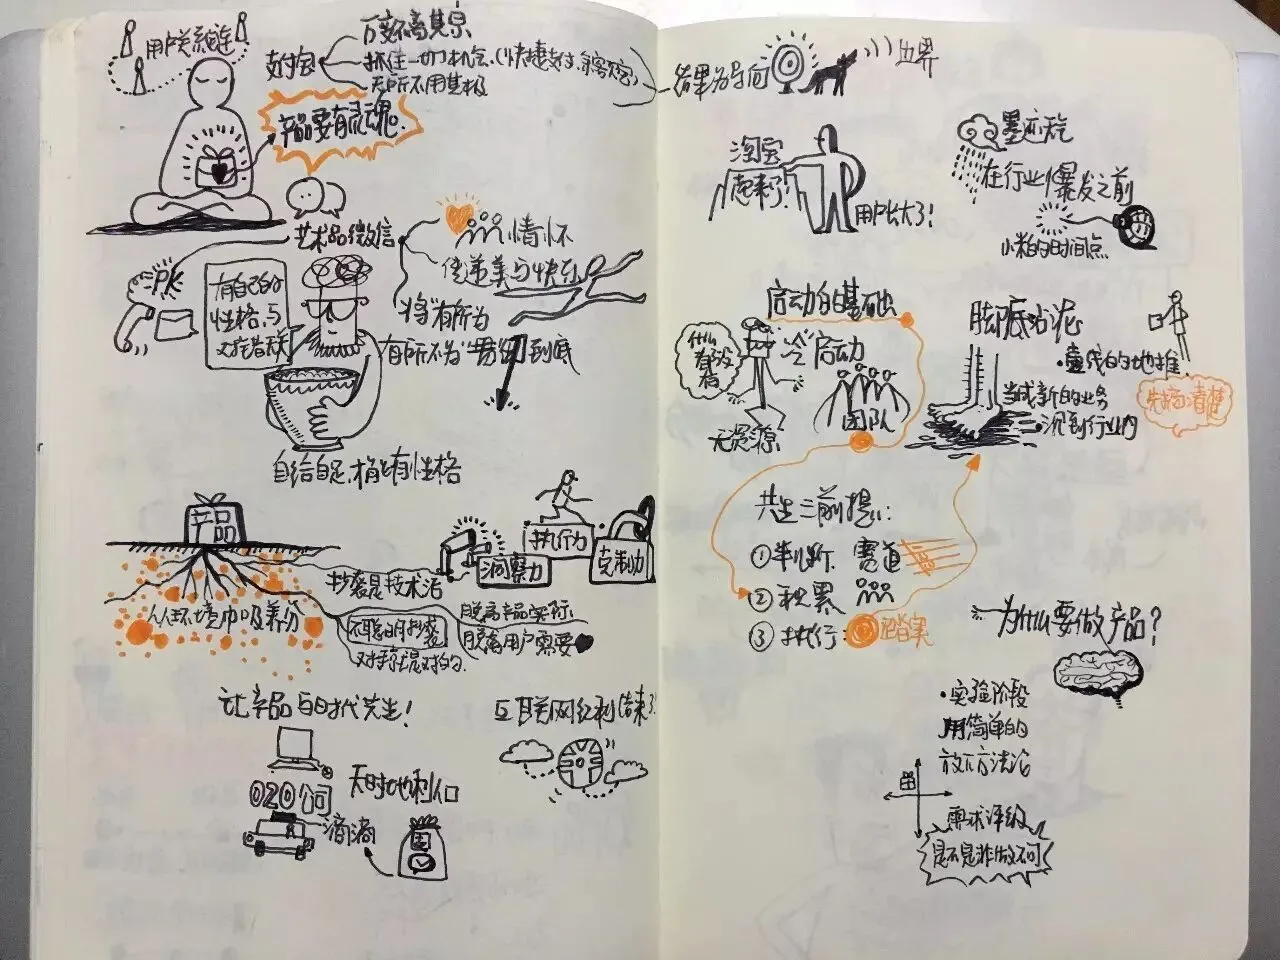 用户关系链连
支付宝
万变不离其宗
抓住一切机会.(快捷支付,余额宝)
无所不用其极
产品要有灵魂.
艺术品微信
情怀
传递美与快乐
将"有所为
有所不为"贯彻到底
PK
有自己的
性格,与
自给自足,才能有性格
产品
人从环境中吸养分
抄袭是技术活
不聪明抄袭
对手就是对的.
脱离产品实际
脱离用户需要
洞察力
执行力
克制力
让产品与时代共生!
O2O公司
滴滴
天时地利人和
互联网红利结束了!
结果为导向
边界
淘宝
起来了!
用户长大了!
墨迹天气
在行业爆发之前
小米的时间点
启动的基础
"冷"启动
什么
都没
有
无资源
团队
脚底沾泥
当成新的业务
沉到行业内
先搞清楚
共生三前提:
①判断 赛道
②积累
③执行:
为什么要做产品?
·实验阶段
用简单的
方法论
需求评级
是不是非做不可